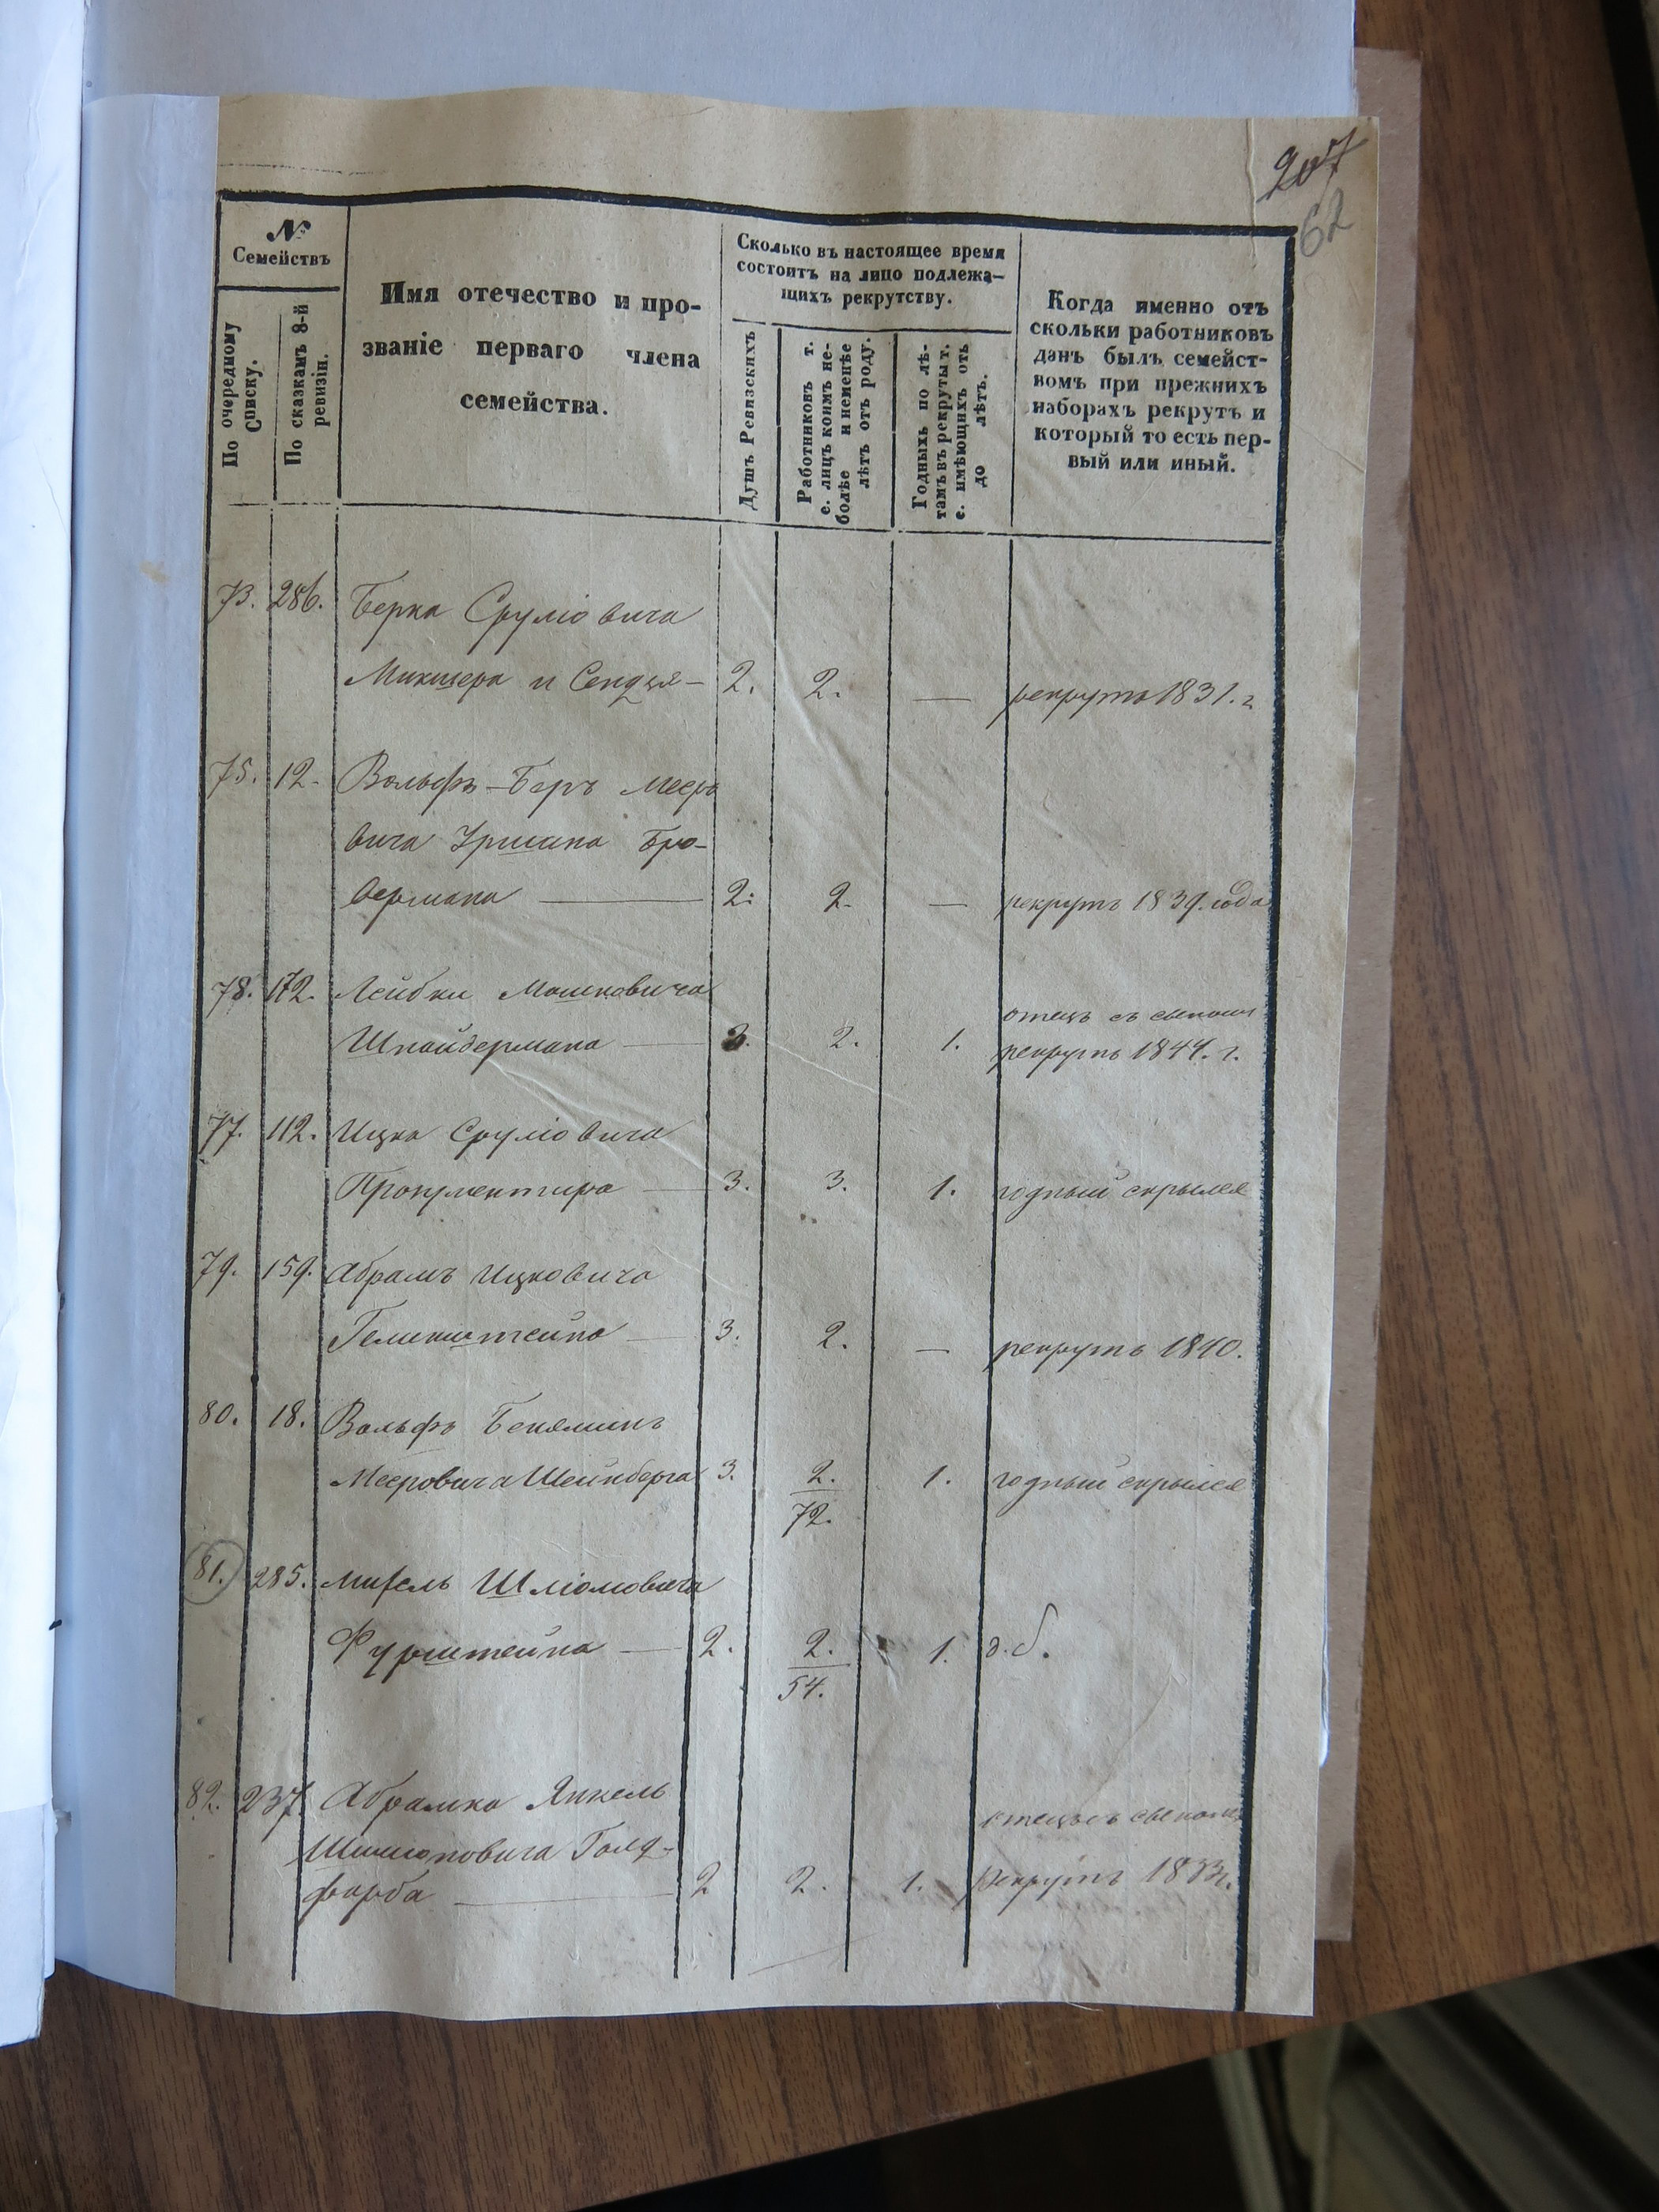 207
62
№
Семействъ
По очередному
Списку.
По сказкамъ 8-й
ревизіи.
Имя отечество и про-
званіе перваго члена
семейства.
Сколько въ настоящее время
состоитъ на лицо подлежа-
щихъ рекрутству.
Душъ Ревизскихъ
Работниковъ т.
е. лицъ коимъ не-
болѣе и неменѣе
лѣтъ отъ роду.
Годныхъ по лѣ-
тамъ въ рекруты т.
е. имѣющихъ отъ
до лѣтъ.
Когда именно отъ
скольки работниковъ
данъ былъ семейст-
вомъ при прежнихъ
наборахъ рекрутъ и
который то есть пер-
вый или иный.
73. 286. Берка Сруліовича
и 2. 2. — рекрутъ 1831. г
75. 12. Вольфъ-Беръ Меера
вича Бро-
вермана — 2. 2. — рекрутъ 1839. года
78. 172. Лейбки Мошковича
отецъ съ сыномъ
Шнайдермана — 2. 2. 1. рекрутъ 1844. г.
77. 112. Ицка Сруліовича
Прокументира — 3. 3. 1. годный скрылся
79. 159. Абрамъ Ицковича
3. 2. — рекрутъ 1840.
80. 18. Вольфъ Бенямин
Мееровича Шейнберга 3. 2. 1. годный скрылся
72.
81. 285. Шліомовича
Фурштейна — 2. 2. 1. д. б.
54.
82. 237 Абрамка Янкель
отецъ съ сыномъ
Шимоновича Голд-
фарба — 2 2. 1. рекрутъ